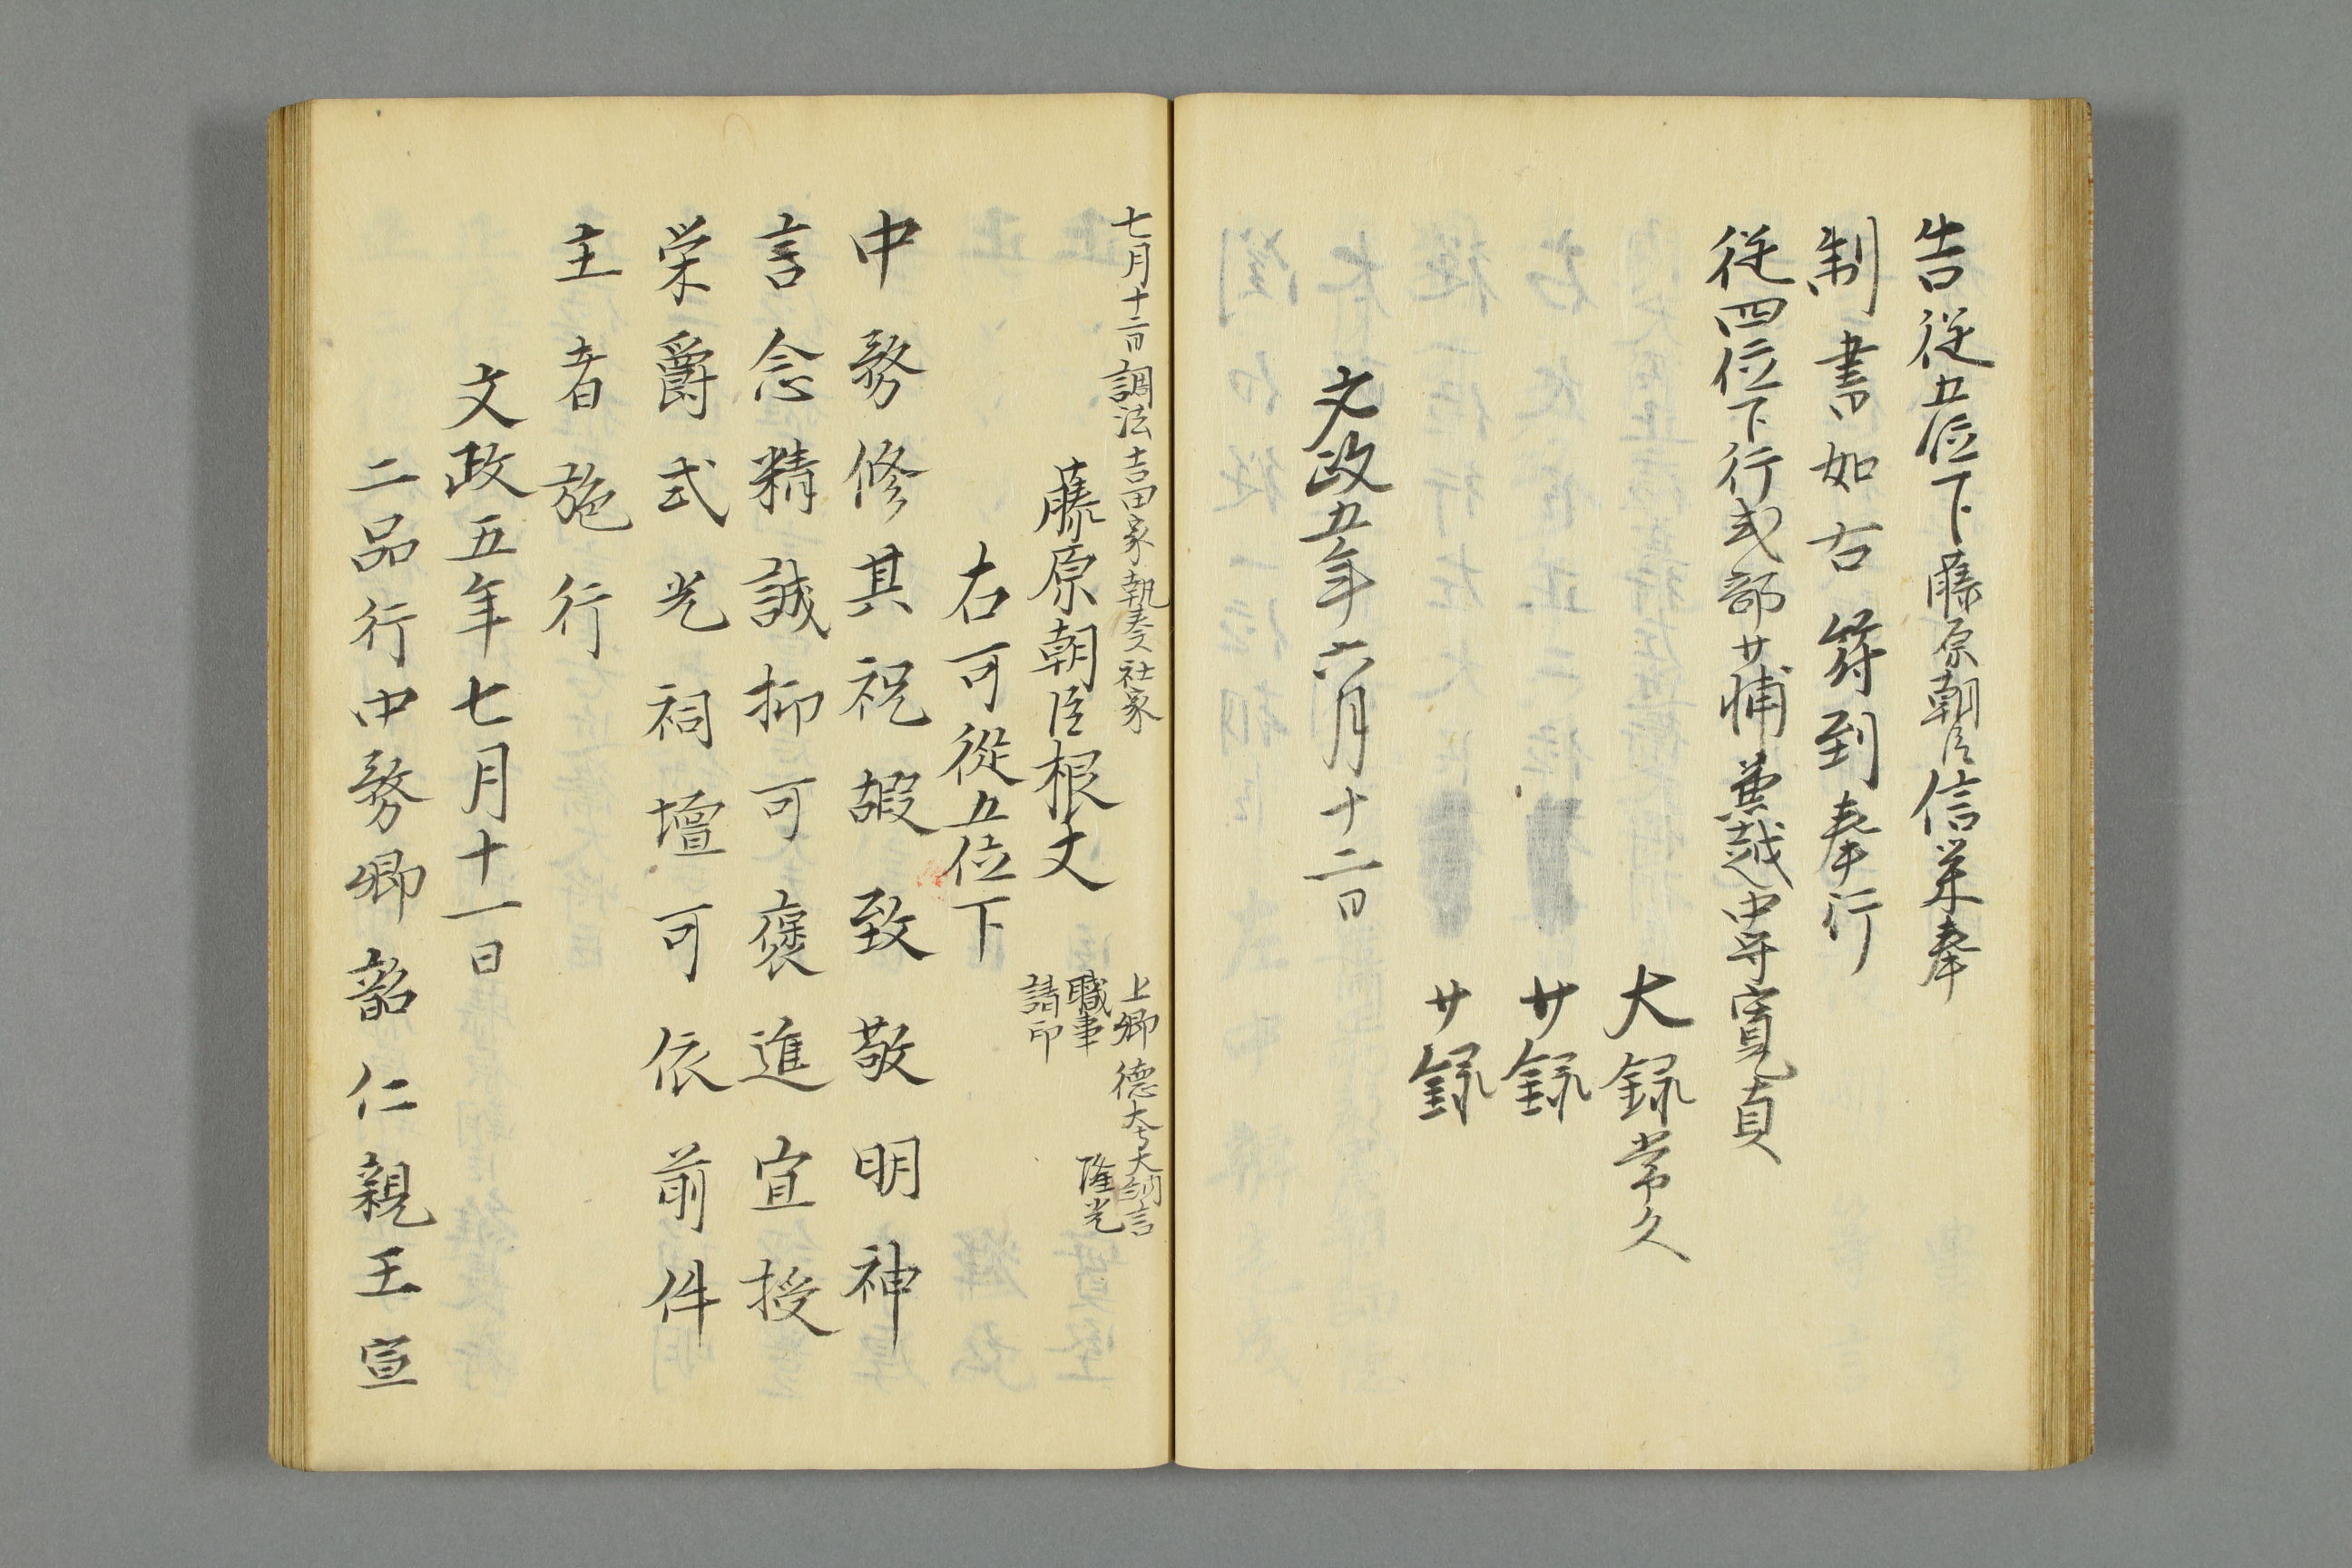 告従五位下藤原朝臣信業奉
制書如右符到奉行
従四位下行式部少輔兼越中守寛貞
大録常久
少録
少録
文政五年六月十二日
七月十二日調法吉田家執奏社家
上卿 德大寺大納言
職事 隆光
請印
藤原朝臣根丈
右可從五位下
中務修其祝嘏致敬明神
言念精誠抑可褒進宜授
栄爵式光祠壇可依前件
主者施行
文政五年七月十一日
二品行中務卿韶仁親王宣